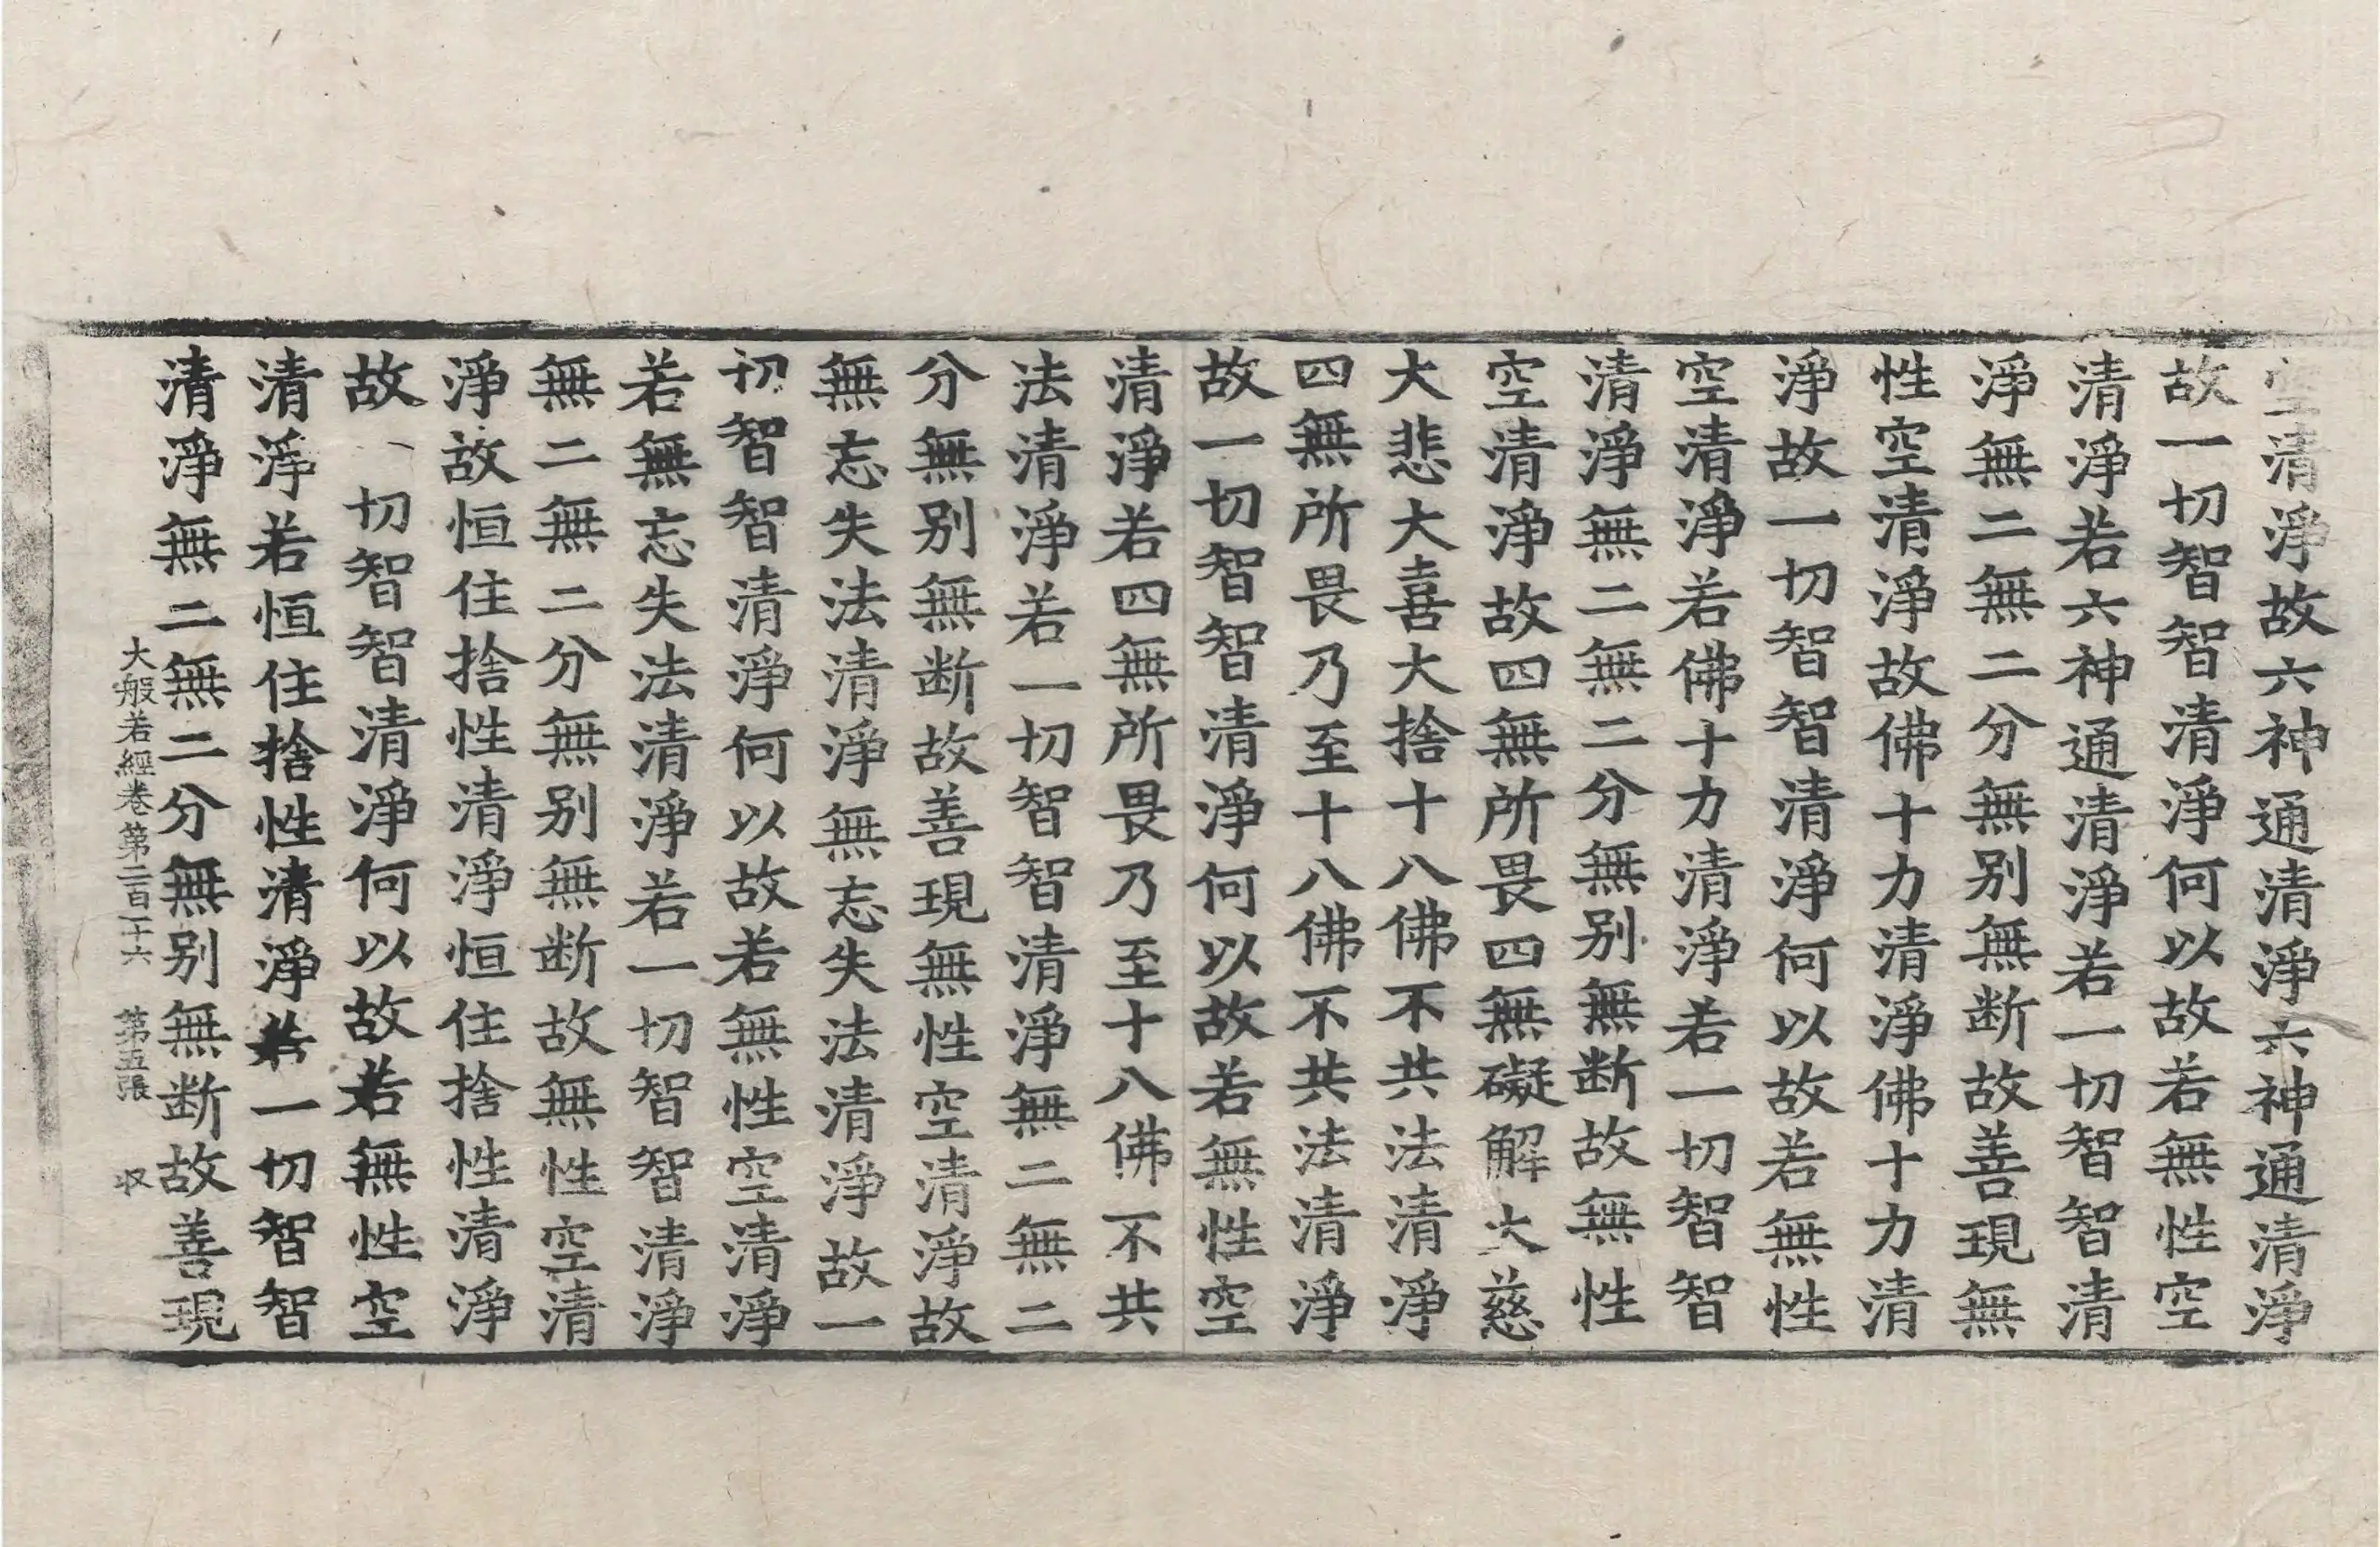 空清淨故六神通清淨六神通清淨
故一切智智清淨何以故若無性空
清淨若六神通清淨若一切智智清
淨無二無二分無別無断故善現無
性空清淨故佛十力清淨佛十力清
淨故一切智智清淨何以故若無性
空清淨若佛十力清淨若一切智智
清淨無二無二分無別無断故無性
空清淨故四無所畏四無礙解大慈
大悲大喜大捨十八佛不共法清淨
四無所畏乃至十八佛不共法清淨
故一切智智清淨何以故若無性空
清淨若四無所畏乃至十八佛不共
法清淨若一切智智清淨無二無二
分無別無断故善現無性空清淨故
無忘失法清淨無忘失法清淨故一
切智智清淨何以故若無性空清淨
若無忘失法清淨若一切智智清淨
無二無二分無別無断故無性空清
淨故恒住捨性清淨恒住捨性清淨
故一切智智清淨何以故若無性空
清淨若恒住捨性清淨若一切智智
清淨無二無二分無別無断故善現
大般若經卷第二百二十六 第五張 収